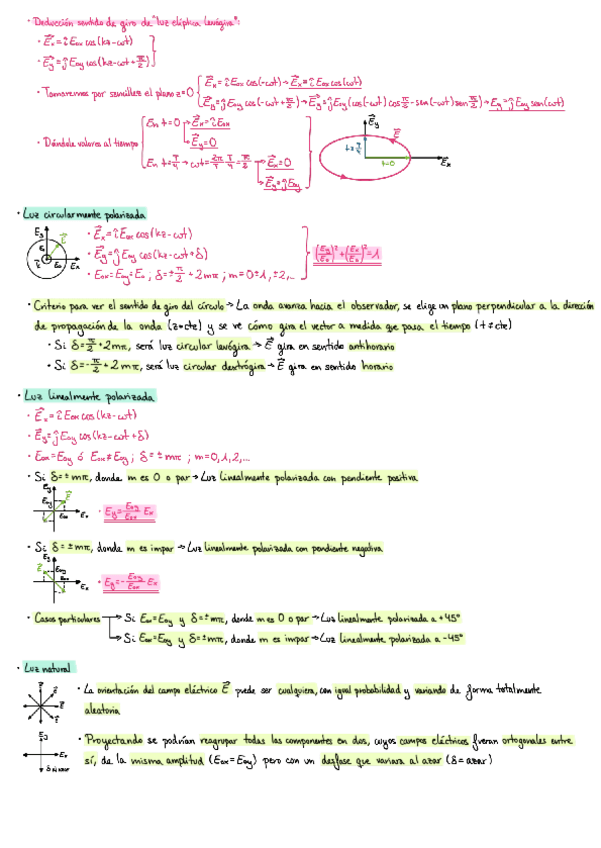 · Deducción sentido de giro de "luz elíptica levógira":
· E⃗x = îEox cos(kz-ωt)
· E⃗y = ĵEoy cos(kz-ωt+π/2)
· Tomaremos por sencillez el plano z=0 { E⃗x = îEox cos(-ωt) → E⃗x = îEox cos(ωt)
E⃗y = ĵEoy cos(-ωt+π/2) → E⃗y = ĵEoy (cos(-ωt) cos π/2 - sen(-ωt) sen π/2) → E⃗y = ĵEoy sen(ωt)
· Dándole valores al tiempo { En t=0 → E⃗x = îEox
→ E⃗y = 0
En t = T/4 → ωt = 2π/T T/4 = π/2 → E⃗x = 0
→ E⃗y = ĵEoy
E⃗y
E⃗
t=T/4
t=0
E⃗x
· Luz circularmente polarizada
Ey
E⃗
Eo
Eo
Ex
· E⃗x = îEox cos(kz-ωt)
· E⃗y = ĵEoy cos(kz-ωt+δ)
· Eox = Eoy = Eo ; δ = ± π/2 + 2mπ ; m = 0, ±1, ±2,...
(Ey/Eo)² + (Ex/Eo)² = 1
· Criterio para ver el sentido de giro del círculo → La onda avanza hacia el observador, se elige un plano perpendicular a la dirección
de propagación de la onda (z=cte) y se ve cómo gira el vector a medida que pasa el tiempo (t ≠ cte)
· Si δ = π/2 + 2mπ, será luz circular levógira → E⃗ gira en sentido antihorario
· Si δ = -π/2 + 2mπ, será luz circular dextrógira → E⃗ gira en sentido horario
· Luz linealmente polarizada
· E⃗x = îEox cos(kz-ωt)
· E⃗y = ĵEoy cos(kz-ωt+δ)
· Eox = Eoy ó Eox ≠ Eoy ; δ = ± mπ ; m = 0, 1, 2,...
· Si δ = ± mπ, donde m es 0 o par → Luz linealmente polarizada con pendiente positiva
Ey
Eoy
E⃗
Eox
Ex
· Ey = Eoy/Eox Ex
· Si δ = ± mπ, donde m es impar → Luz linealmente polarizada con pendiente negativa
Ey
E⃗
Eoy
Eox
Ex
· Ey = - Eoy/Eox Ex
· Casos particulares → Si Eox = Eoy y δ = ± mπ, donde m es 0 o par → Luz linealmente polarizada a +45°
→ Si Eox = Eoy y δ = ± mπ, donde m es impar → Luz linealmente polarizada a -45°
· Luz natural
· La orientación del campo eléctrico E⃗ puede ser cualquiera, con igual probabilidad y variando de forma totalmente
aleatoria
Ey
Ex
· Proyectando se podrían reagrupar todas las componentes en dos, cuyos campos eléctricos fueran ortogonales entre
sí, de la misma amplitud (Eox = Eoy) pero con un desfase que variara al azar (δ = azar)